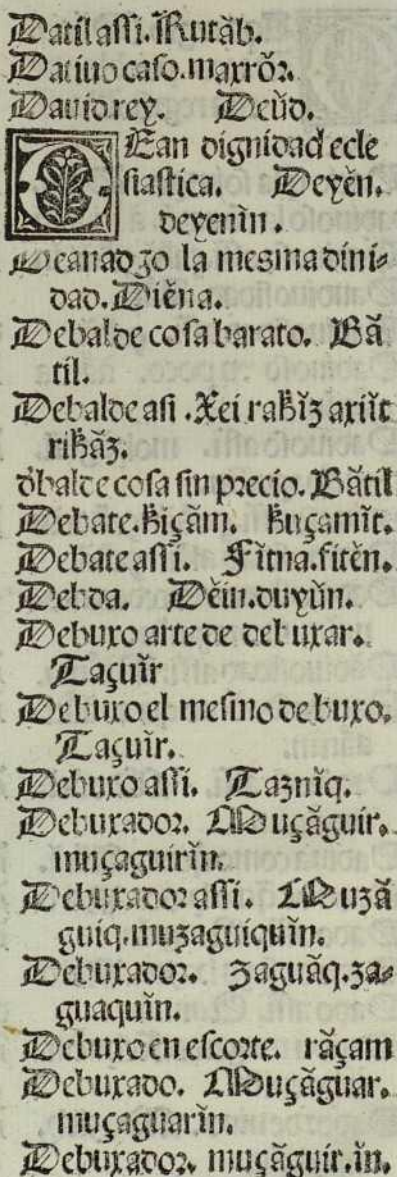 Datil assi. Rutăb.
Datiuo caso. maxrŏr.
Dauid rey. Deŭd.
DEan dignidad ecle
siastica. Deyĕn.
deyenìn.
Deanadgo la mesma dini-
dad. Diĕna.
Debalde cosa barato. Bă
til.
Debalde asi. Xei rakĭz axiĭt
rikăz.
đbalde cosa sin precio. Bătil
Debate. kiçăm. kuçamĭt.
Debate assi. Fĭtna. fitĕn.
Debda. Dĕin. duyŭn.
Debuxo arte de debuxar.
Taçuĭr
Debuxo el mesmo debuxo.
Taçuĭr.
Debuxo assi. Taznĭq.
Debuxador. Muçăguir.
muçaguirĭn.
Debuxador assi. Muză
guiq. muzaguiquĭn.
Debuxador. zaguăq. za-
guaquĭn.
Debuxo en escorte. răçam
Debuxado. Muçăguar.
muçaguarĭn.
Debuxador. muçăguir. ĭn.